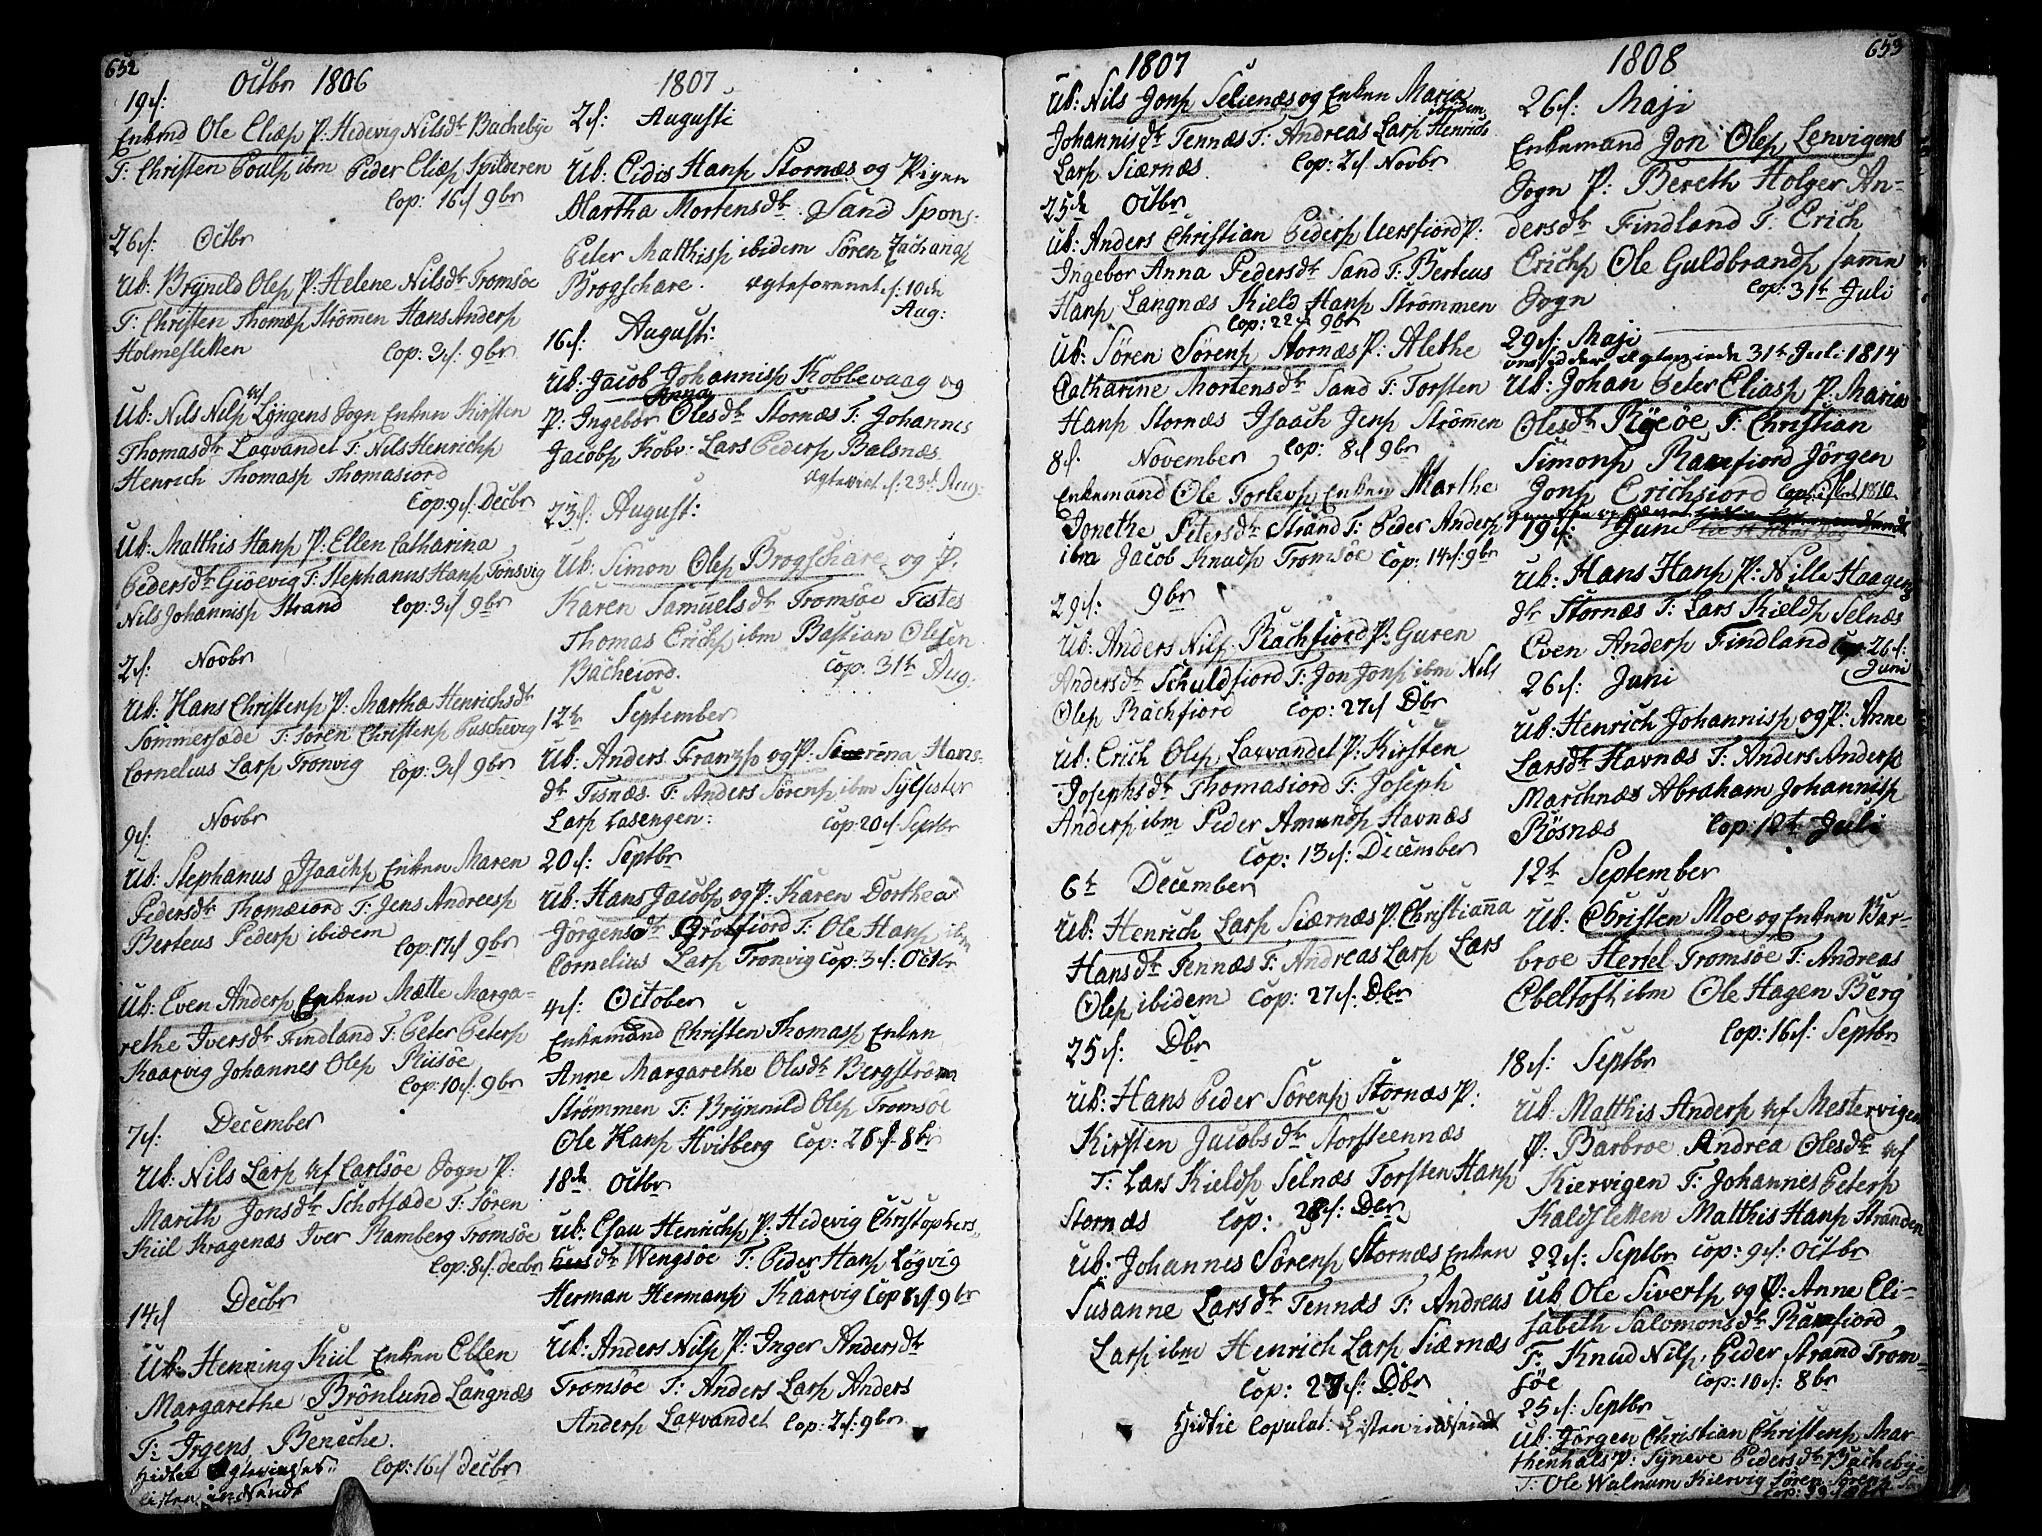 652
Octbr 1806
19d:
Enkmd Ole Eliæs. P: Hedevig Nilsdtr Bachebye
T: Christen Pouls. ibm Peder Eliæs. Spilderen
Cop: 16d 9br
26d: Octbr
Ub: Brynild Oles. P: Helene Nilsdtr Tromsøe
T: Christen Thomæs. Strømmen Hans Anders.
Holmesletten Cop: 3d: 9br
Ub: Nils Nils. af Lyngens Sogn Enken Kirsten
Thomasdtr Laxvandet T: Nils Henrichs.
Henrich Thomas. Thomasiord
Cop: 9d: Decbr
Ub: Matthis Hans. P: Ellen Catharina
Pedersdtr Giøevig T: Stephanus Hans. Tønsvig
Nils Johannis. Strand Cop: 3d 9br
2d: Novbr
Ub: Hans Christens. P: Martha Henrichsdtr
Sommersæde T: Søren Christens. Buschevig
Cornelius Lars. Tronvig Cop: 3d 9br
9d: Novbr
Ub: Stephanus Isaachs. Enken Maren
Pedersdtr Thomæiord T: Jens Andrees.
Berteus Peders. ibidem Cop: 17d 9br
Ub: Even Anders. Enken Mætte Marga-
rethe Iversdtr Findland T: Peter Peters.
Kaarvig Johannes Oles. Riisøe
Cop: 10d: 9br
7d: December
Ub: Nils Lars. af Carlsøe Sogn P:
Marith Jonsdtr Schotsæde T: Søren
Kiil Kragenæs Iver Ramberg Tromsøe
Cop: 8d: decbr
14d Decbr
Ub: Henning Kiil Enken Ellen
Margarethe Brønlund Langnæs
T: Irgens Beneche.
Cop: 16d decbr
Hidtil Ægtevinsses
Listen indsendt
1807.
2d: Augusti
Ub: Eidis Hans. Stornæs og Pigen
Martha Mortensdtr Sand Spons:
Peter Matthis. ibidem Søren Zacharias.
Brogschare. Ægteforenet d: 10de
Aug:
16d: Augusti:
Ub: Jacob Johannis. Kobbevaag og
P: Ingebor Anna Olesdtr Stornæs T: Johannes
Jacobs. Kobv: Lars Peders. Balsnæs.
Ægteviet d: 23d: Aug:
23d: August:
Ub: Simon Oles. Brogschare og P.
Karen Samuelsdtr Tromsøe Testes
Thomas Erichs. ibm Bastian Olesen
Bacheiord. Cop: 31te Aug:
12te September
Ub: Anders Franzs. og P: Severena Hans-
dtr Tisnæs. T: Anders Sørens. ibm Sylfester
Lars. Lasengen: Cop: 20d Septbr
20d: Septbr
Ub: Hans Jacobs. og P: Karen Dorthea
Jørgensdtr Grøtfiord T: Ole Hans. ibm
Cornelius Lars. Tronvig Cop: 3d: Octbr
4d: October
Enkemand Christen Thomas. Enken
Anne Margarethe Olesdtr Bergstrøm
Strømmen T: Brynnild Oles. Tromsøe
Ole Hans. Hvitberg Cop: 28d 8br
18de Octbr
Ub: Esau Henrichs. P: Hedevig Christophers-
dtr Wengsøe T: Peder Hans. Løgvig
Herman Hermans. Kaarvig Cop 8d: 9br
Ub: Anders Nils. P: Inger Andersdtr
Tromsøe T: Anders Lars. Anders
Anders. Laxvandet Cop: 2d: 9br
1807
Ub: Nils Jons. Selienæs og Enken Maria
Johannisdtr Tennæs T: Andreas Lars. ibidem Henrich
Lars. Siærnæs. Cop: 2d Novbr
25de Octbr
Ub: Anders Christian Peders. Uersfiord P:
Ingebor Anna Pedersdtr Sand T: Berteus
Hans. Langnæs Kield Hans. Strømmen
Cop: 22d 9br
Ub: Søren Sørens. Stornæs P: Alethe
Catharine Mortensdtr Sand T: Torsten
Hans. Stornæs Isaach Jens. Strømmen
8d: November Cop: 8d 9br
Enkemand Ole Torlevs. Enken Marthe
Jonethe Petersdtr Strand T: Peder Anders.
ibm Jacob Knuds. Tromsøe Cop: 14d: 9br
29d: 9br
Ub: Anders Nils. Rachfiord P: Guren
Andersdtr Schuldfiord T: Jon Jons. ibm Nils
Oles. Rachfiord Cop: 27d Dbr
Ub: Erich Oles. Laxvandet P: Kirsten
Josephsdtr Thomasiord T: Joseph
Anders. ibm Peder Amunds. Havnæs
Cop: 13d: December
6te December
Ub: Henrich Lars. Siærnæs P: Christianna
Hansdtr Tennæs T: Andreas Lars. Lars
Oles. ibidem Cop: 27d: Dbr
25d: Dbr
Ub: Hans Peder Sørens. Stornæs P:
Kirsten Jacobsdtr Storsteennæs
T: Lars Kields. Selnæs Torsten Hans.
Stornæs Cop: 28d: Dbr
Ub: Johannes Sørens. Stornæs Enken
Susanne Larsdtr Tennæs T: Andreas
Lars. ibm Henrich Lars. Siærnæs
Cop: 27d: Dbr
Hidtil Copulat: Listen indsendt
653
1808
26d: Maji
Enkemand Jon Oles. Lenvigens
Sogn P: Bereth Holger An-
dersdtr Findland T: Erich
Erichs. Ole Guldbrands. samme
Sogn Cop: 31te Juli
29d: Maji
31te Juli 1814
Ub: Johan Peter Elias. P: Maria
Olesdtr Ryeøe T: Christian
Simons. Ramfiord Jørgen
Jons. Erichsiord 1810
19d: Juni
Ub: Hans Hans. P: Nille Haagens
dtr Stornæs T: Lars Kields. Selnæs
Even Anders. Findland Cop: 26d:
Juni
26d: Juni
Ub: Henrich Johannis. og P: Anne
Larsdtr Havnæs T: Anders Anders.
Marchnæs Abraham Johannis.
Røsnæs Cop: 12te Juli
12te September
Ub: Christen Moe og Enken Bar-
broe Hertel Tromsøe T: Andreas
Ebeltoft ibm Ole Hagen Berg
Cop: 16d: Septbr
18d: Septbr
Ub: Matthis Anders. af Mestervigen
P: Barbroe Andrea Olesdtr af
Kiervigen T: Johannes Peters.
Kaldsletten Matthis Hans. Stranden
22d: Septbr Cop: 9d: Octbr
Ub Ole Siverts. og P: Anne Eli-
sabeth Salomonsdtr Ramfiord
T: Knud Nils. Peder Strand Trom-
søe Cop: 10d: 8br
25d: Septbr
Ub: Jørgen Christian Christens. Mar-
thenhals P: Syneve Pedersdtr Bachebye
T: Ole Walnum Kiervig Søren Sørens.